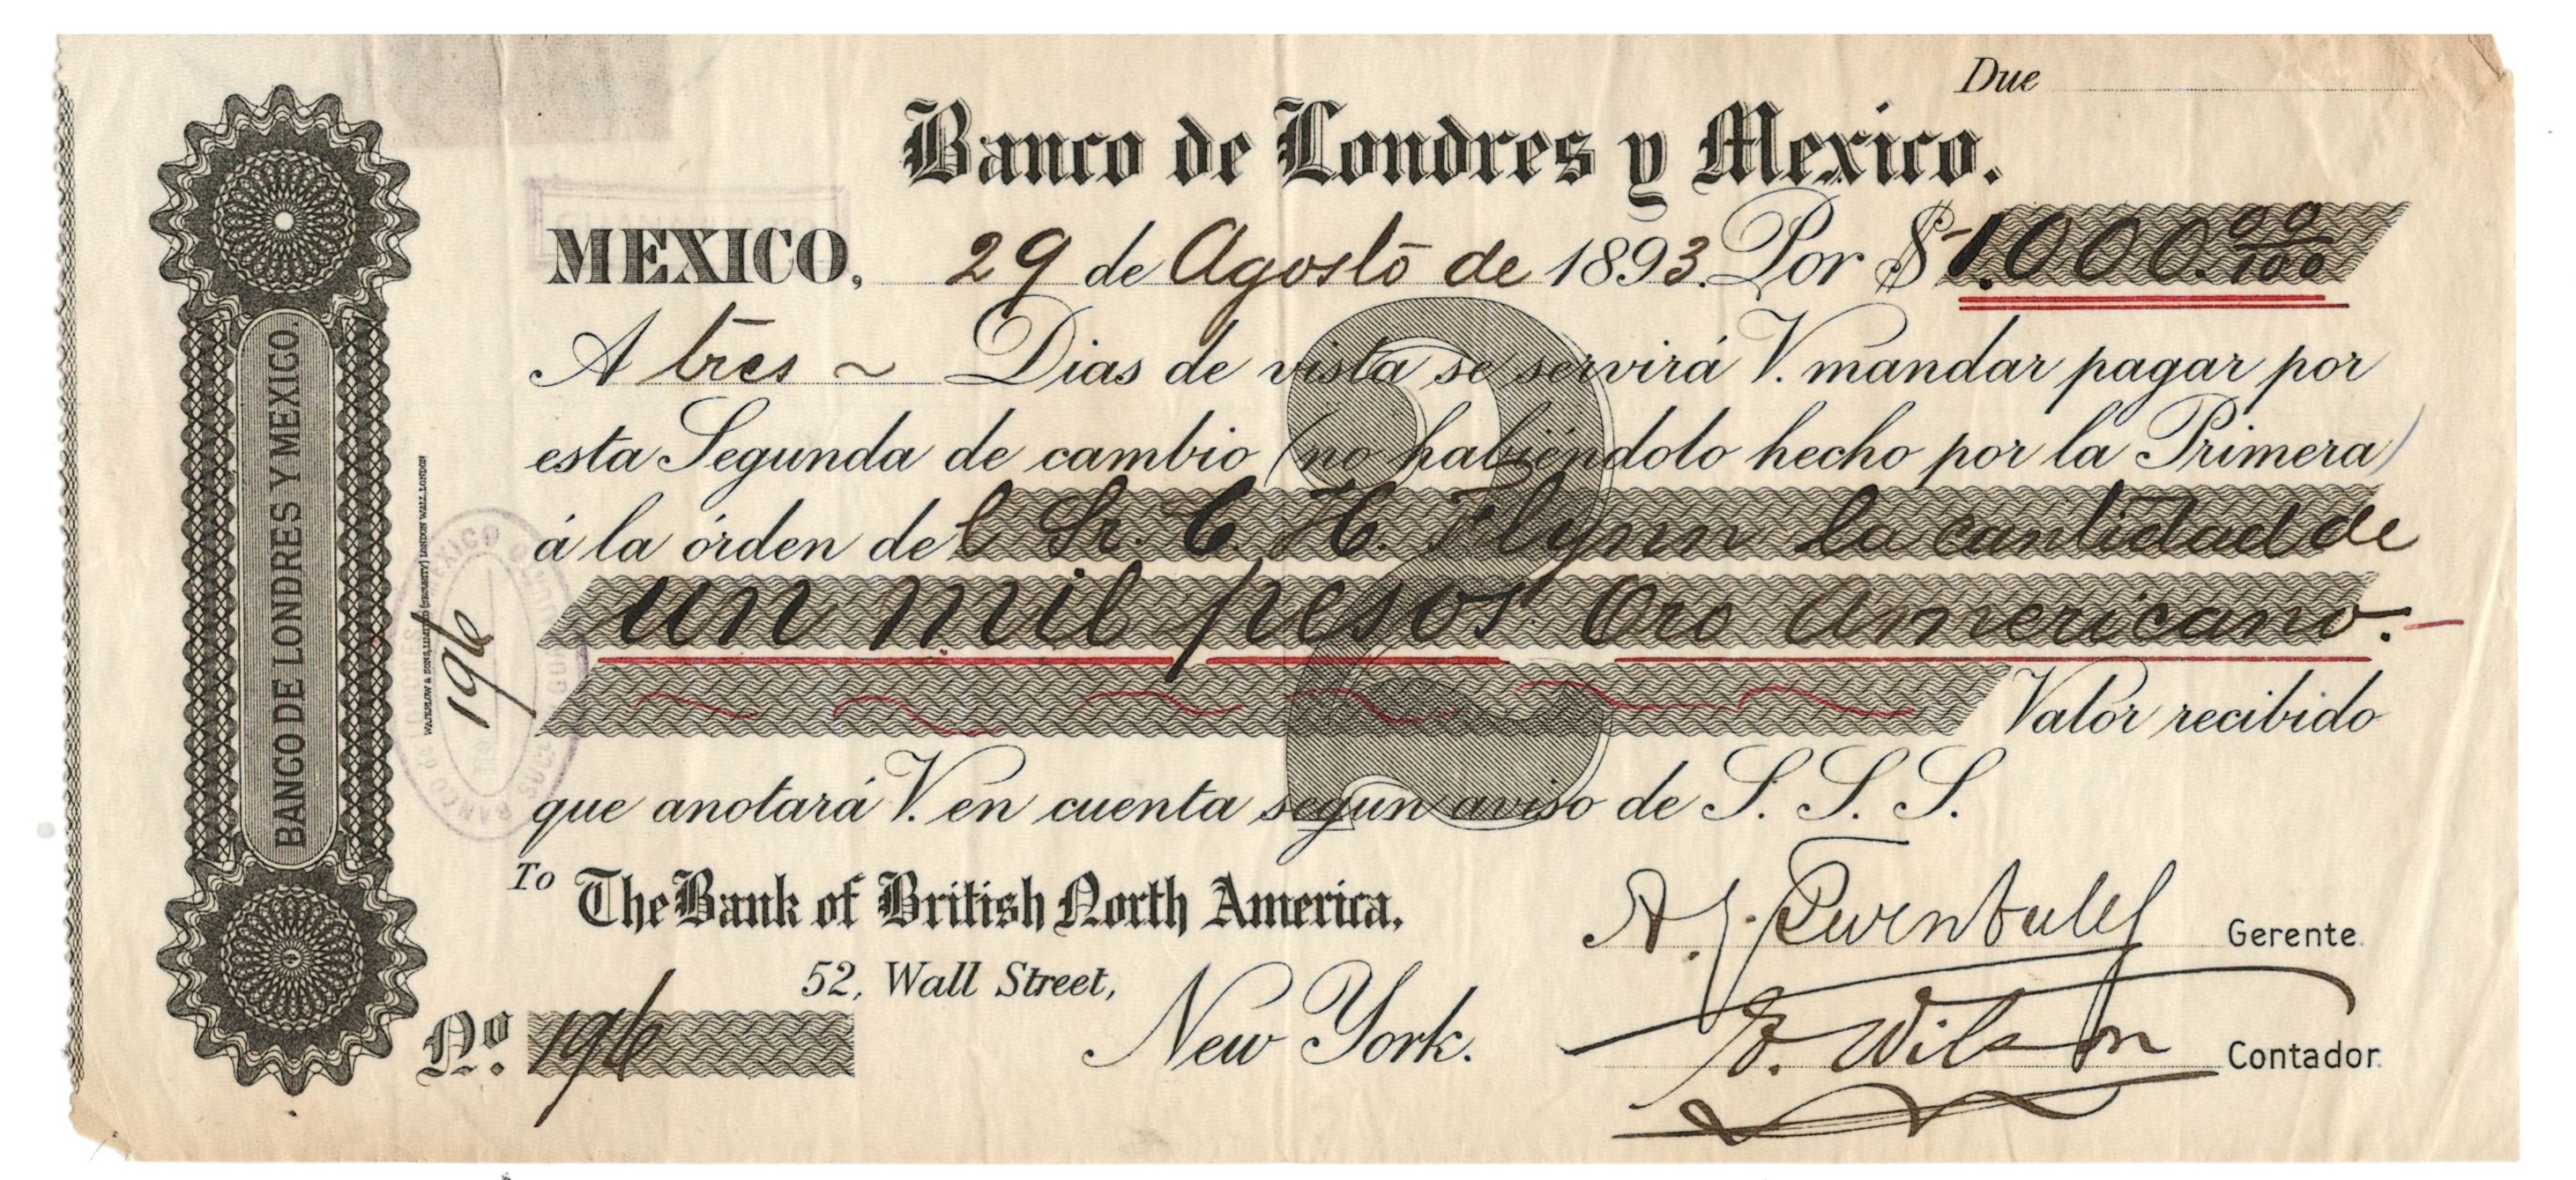 Due
Banco de Londres y Mexico.
MEXICO, 29 de Agosto de 1893. Por $1.000.00/100
A tres ~ Dias de vista se servirá V. mandar pagar por
esta Segunda de cambio (no habiéndolo hecho por la Primera)
á la órden del Sr. C. H. Flynn la cantidad de
un mil pesos Oro Americano.
Valor recibido
que anotará V. en cuenta segun aviso de S. S. S.
To The Bank of British North America,
52, Wall Street,
New York.
No. 196
A. J. Turnbull Gerente.
Wilson Contador.
BANCO DE LONDRES Y MEXICO.
WATERLOW & SONS LIMITED LONDON WALL, LONDON
196